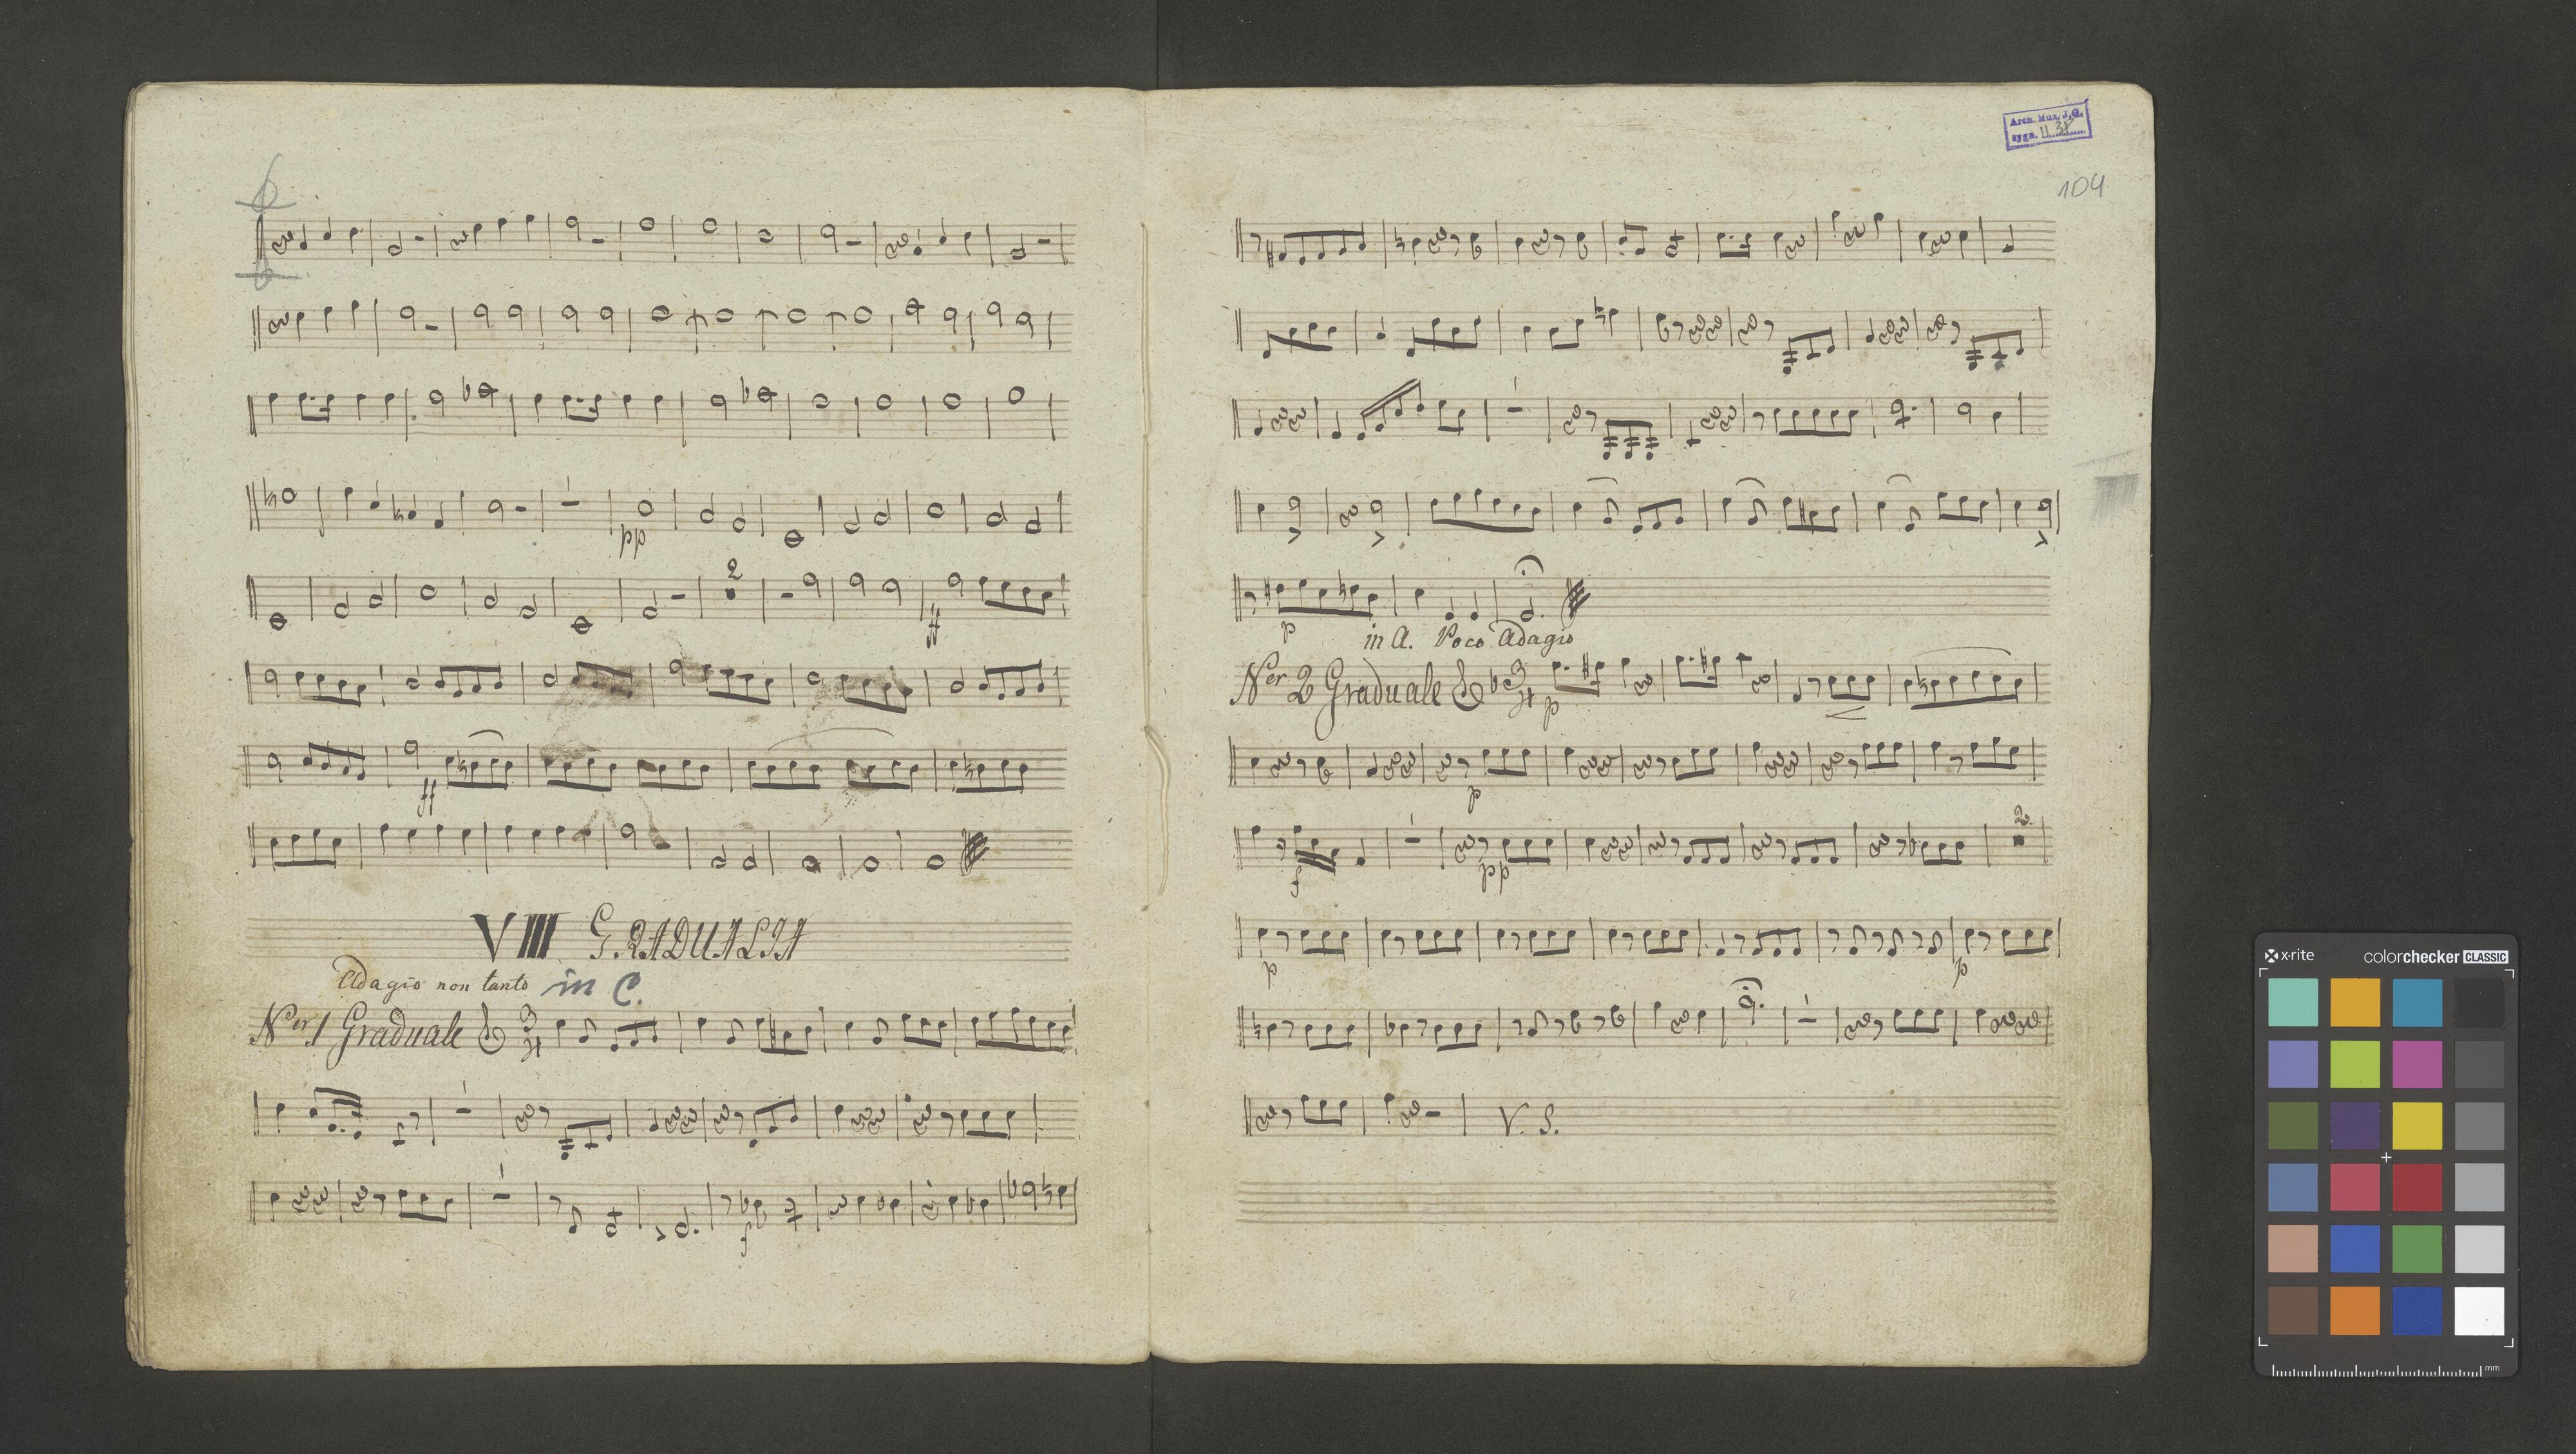 pp
2
ff
ff
VIII GRADUALIA
Adagio non tanto in C.
Nr̲o̲ 1 Graduale 3/4
f
Arch. Muz. J.G.
sygn. II.38
104
p
in A. Poco Adagio
Nro 2 Graduale 3/4 p
p
2
f pp
p p
V. S.
x-rite colorchecker CLASSIC
mm